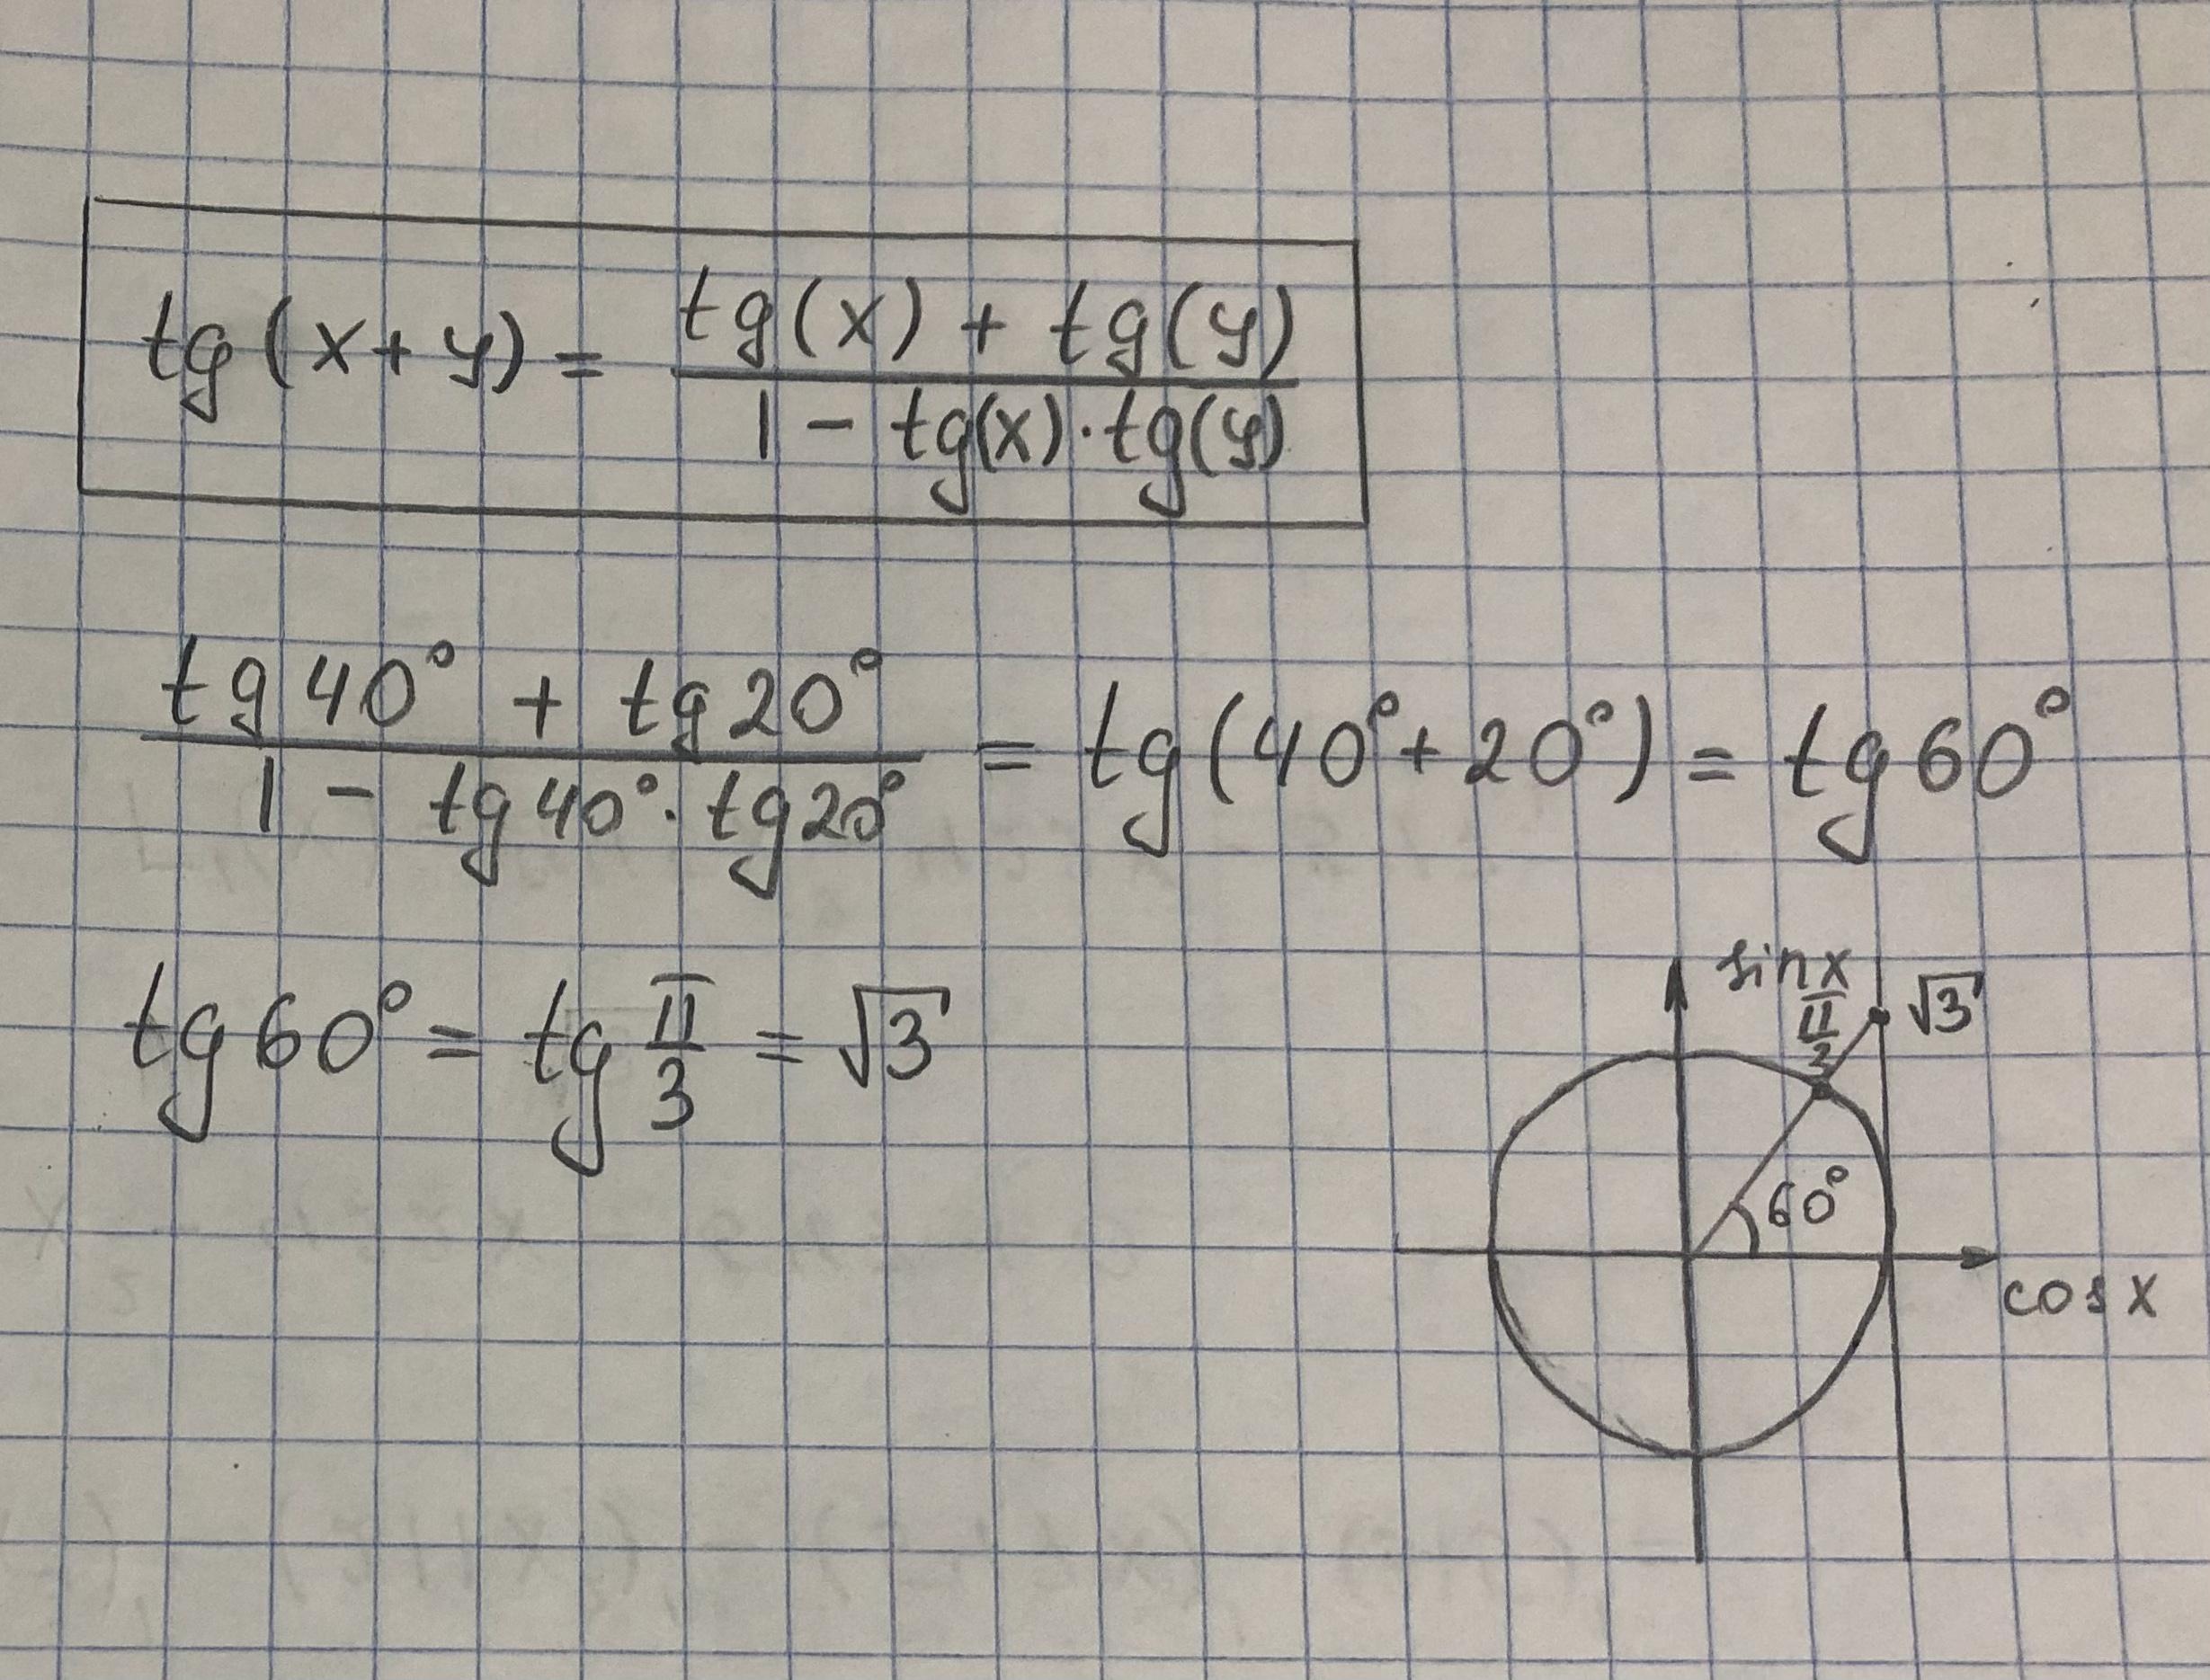 tg(x+y) = (tg(x) + tg(y)) / (1 - tg(x)·tg(y))
(tg40° + tg20°) / (1 - tg40°·tg20°) = tg(40°+20°) = tg60°
tg60° = tg π/3 = √3
sinx
π/3
√3
60°
cosx